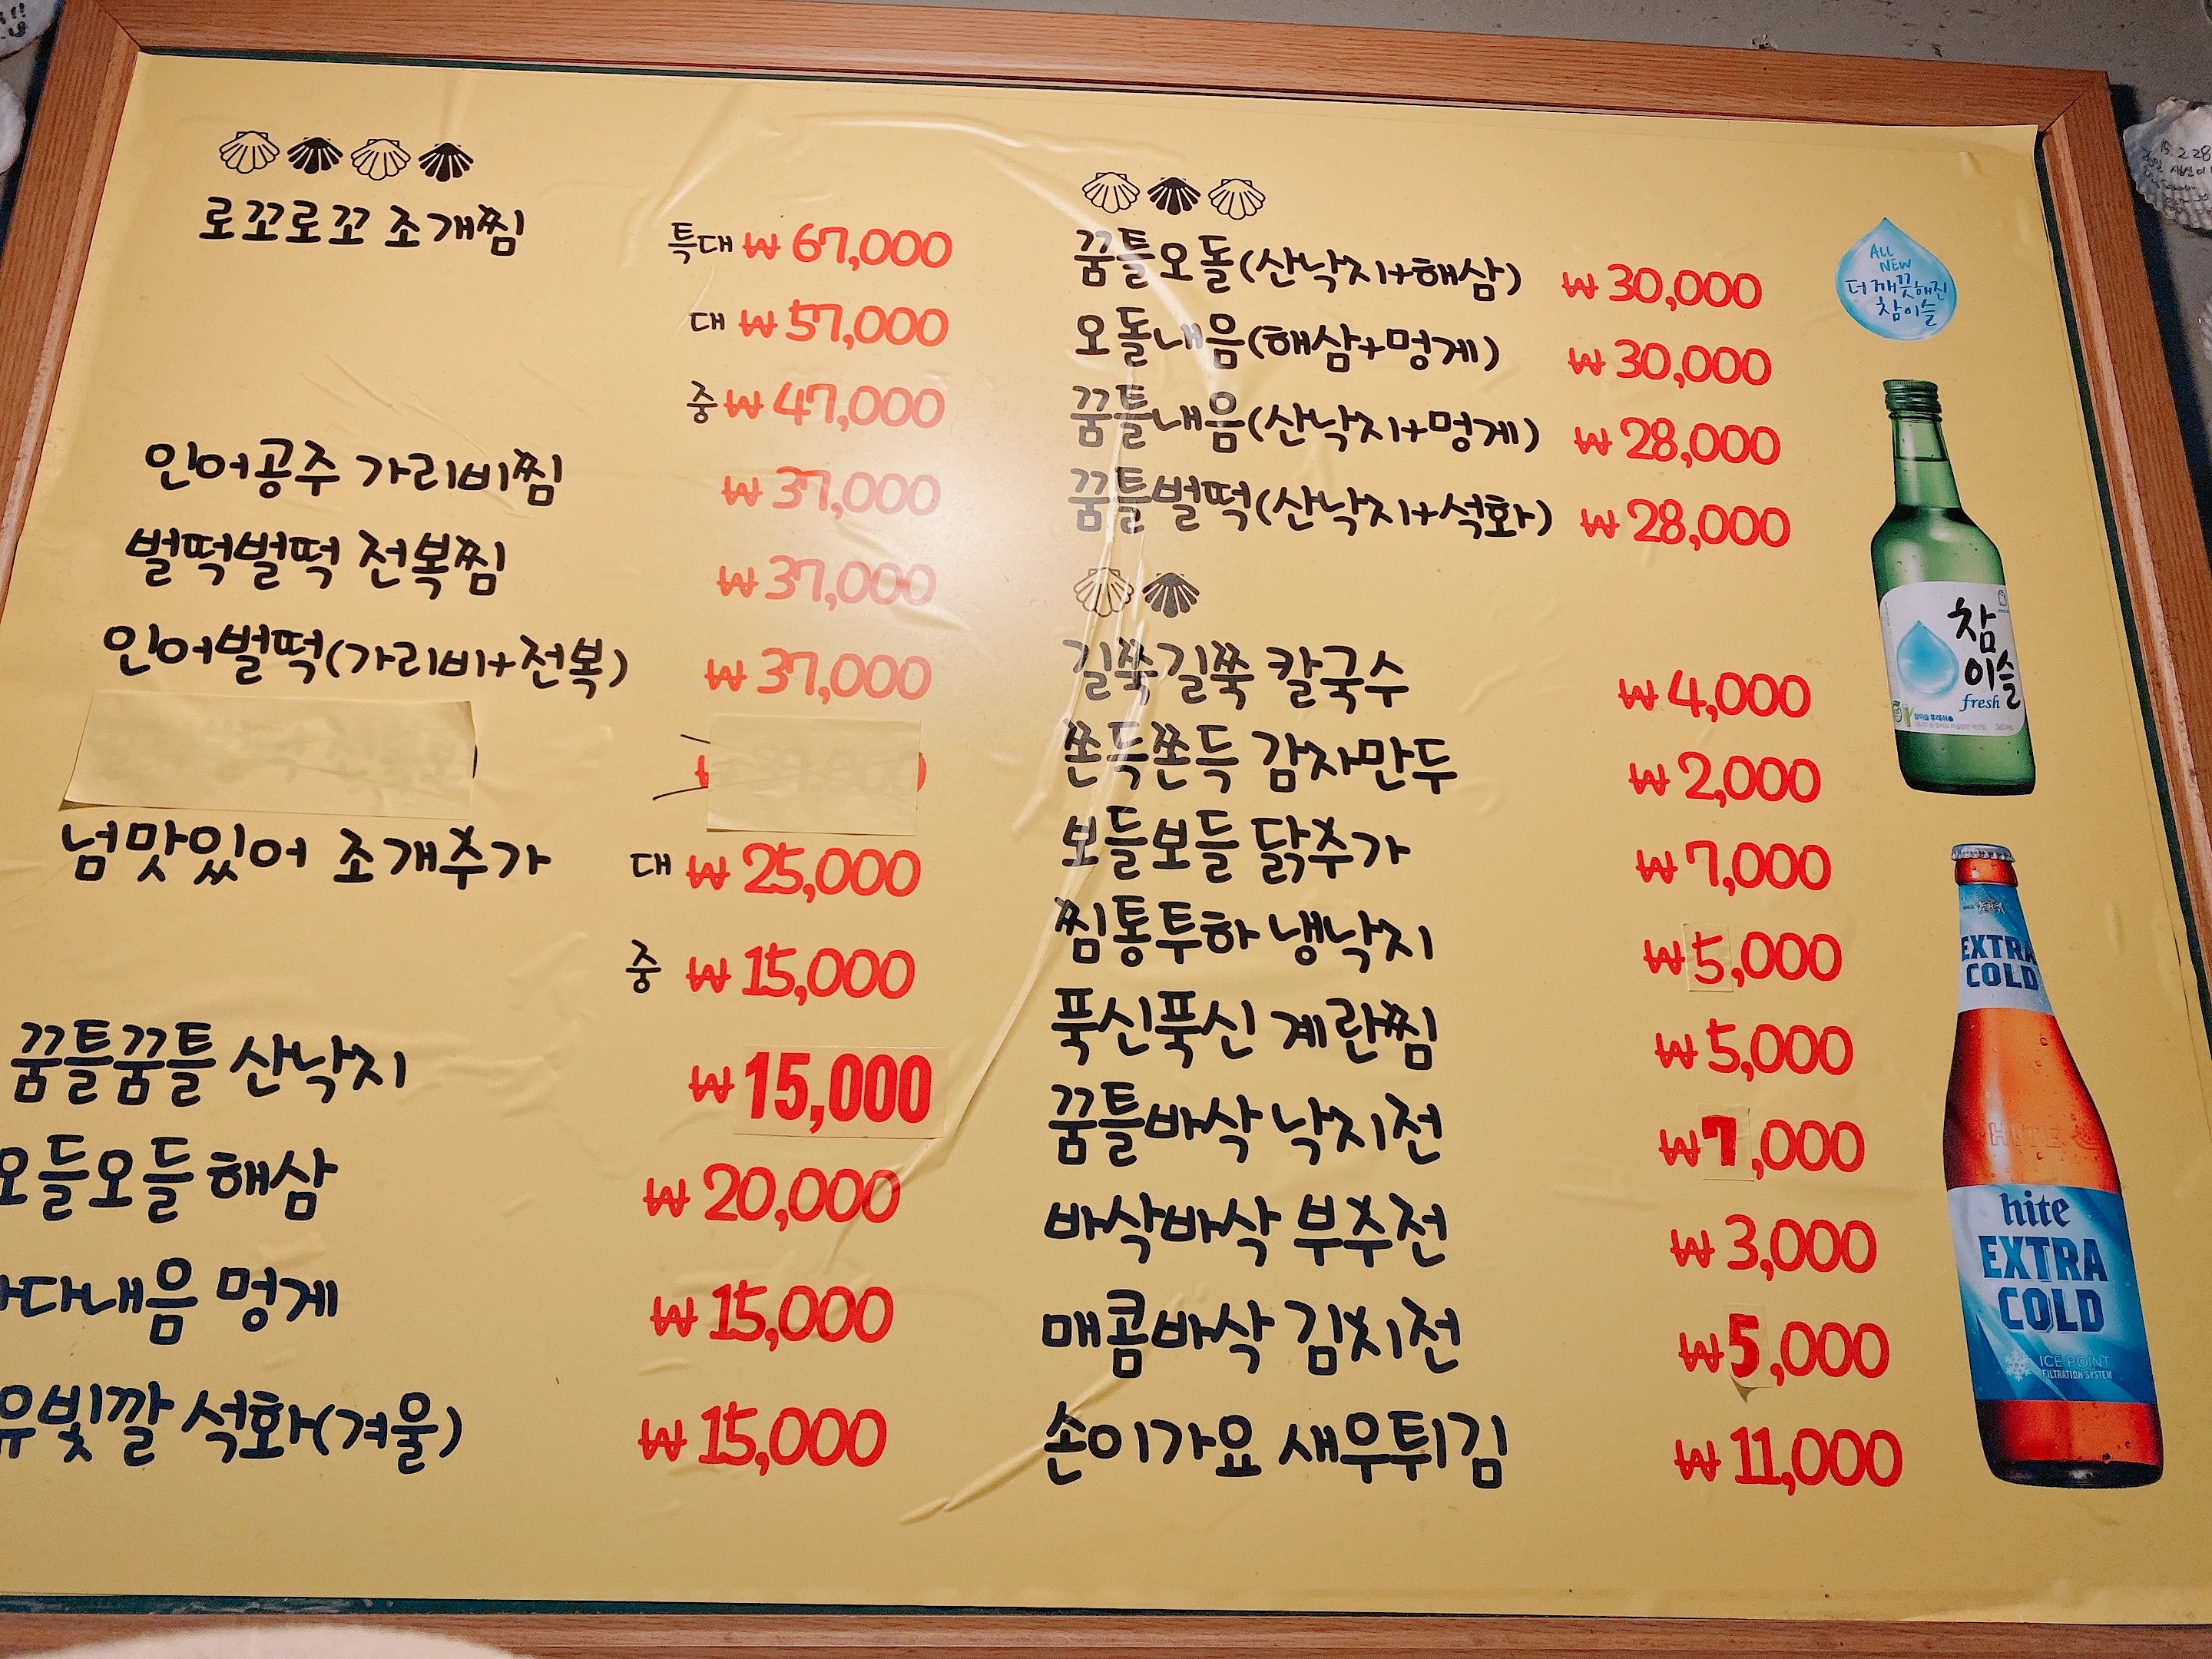 로꼬로꼬 조개찜
특대 ₩ 67,000
대 ₩ 57,000
중 ₩ 47,000
인어공주 가리비찜 ₩ 37,000
벌떡벌떡 전복찜 ₩ 37,000
인어벌떡(가리비+전복) ₩ 37,000
넘맛있어 조개추가 대 ₩ 25,000
중 ₩ 15,000
꿈틀꿈틀 산낙지 ₩ 15,000
오들오들 해삼 ₩ 20,000
다내음 멍게 ₩ 15,000
유빛깔 석화(겨울) ₩ 15,000
꿈틀오돌(산낙지+해삼) ₩ 30,000
오돌내음(해삼+멍게) ₩ 30,000
꿈틀내음(산낙지+멍게) ₩ 28,000
꿈틀벌떡(산낙지+석화) ₩ 28,000
길쭉길쭉 칼국수 ₩ 4,000
쫀득쫀득 감자만두 ₩ 2,000
보들보들 닭추가 ₩ 7,000
찜통투하 냉낙지 ₩ 5,000
푹신푹신 계란찜 ₩ 5,000
꿈틀바삭 낙지전 ₩ 7,000
바삭바삭 부추전 ₩ 3,000
매콤바삭 김치전 ₩ 5,000
손이가요 새우튀김 ₩ 11,000
ALL
NEW
더 깨끗해진
참이슬
참
이슬
fresh
EXTRA
COLD
hite
EXTRA
COLD
ICE POINT
FILTRATION SYSTEM
15.2.28